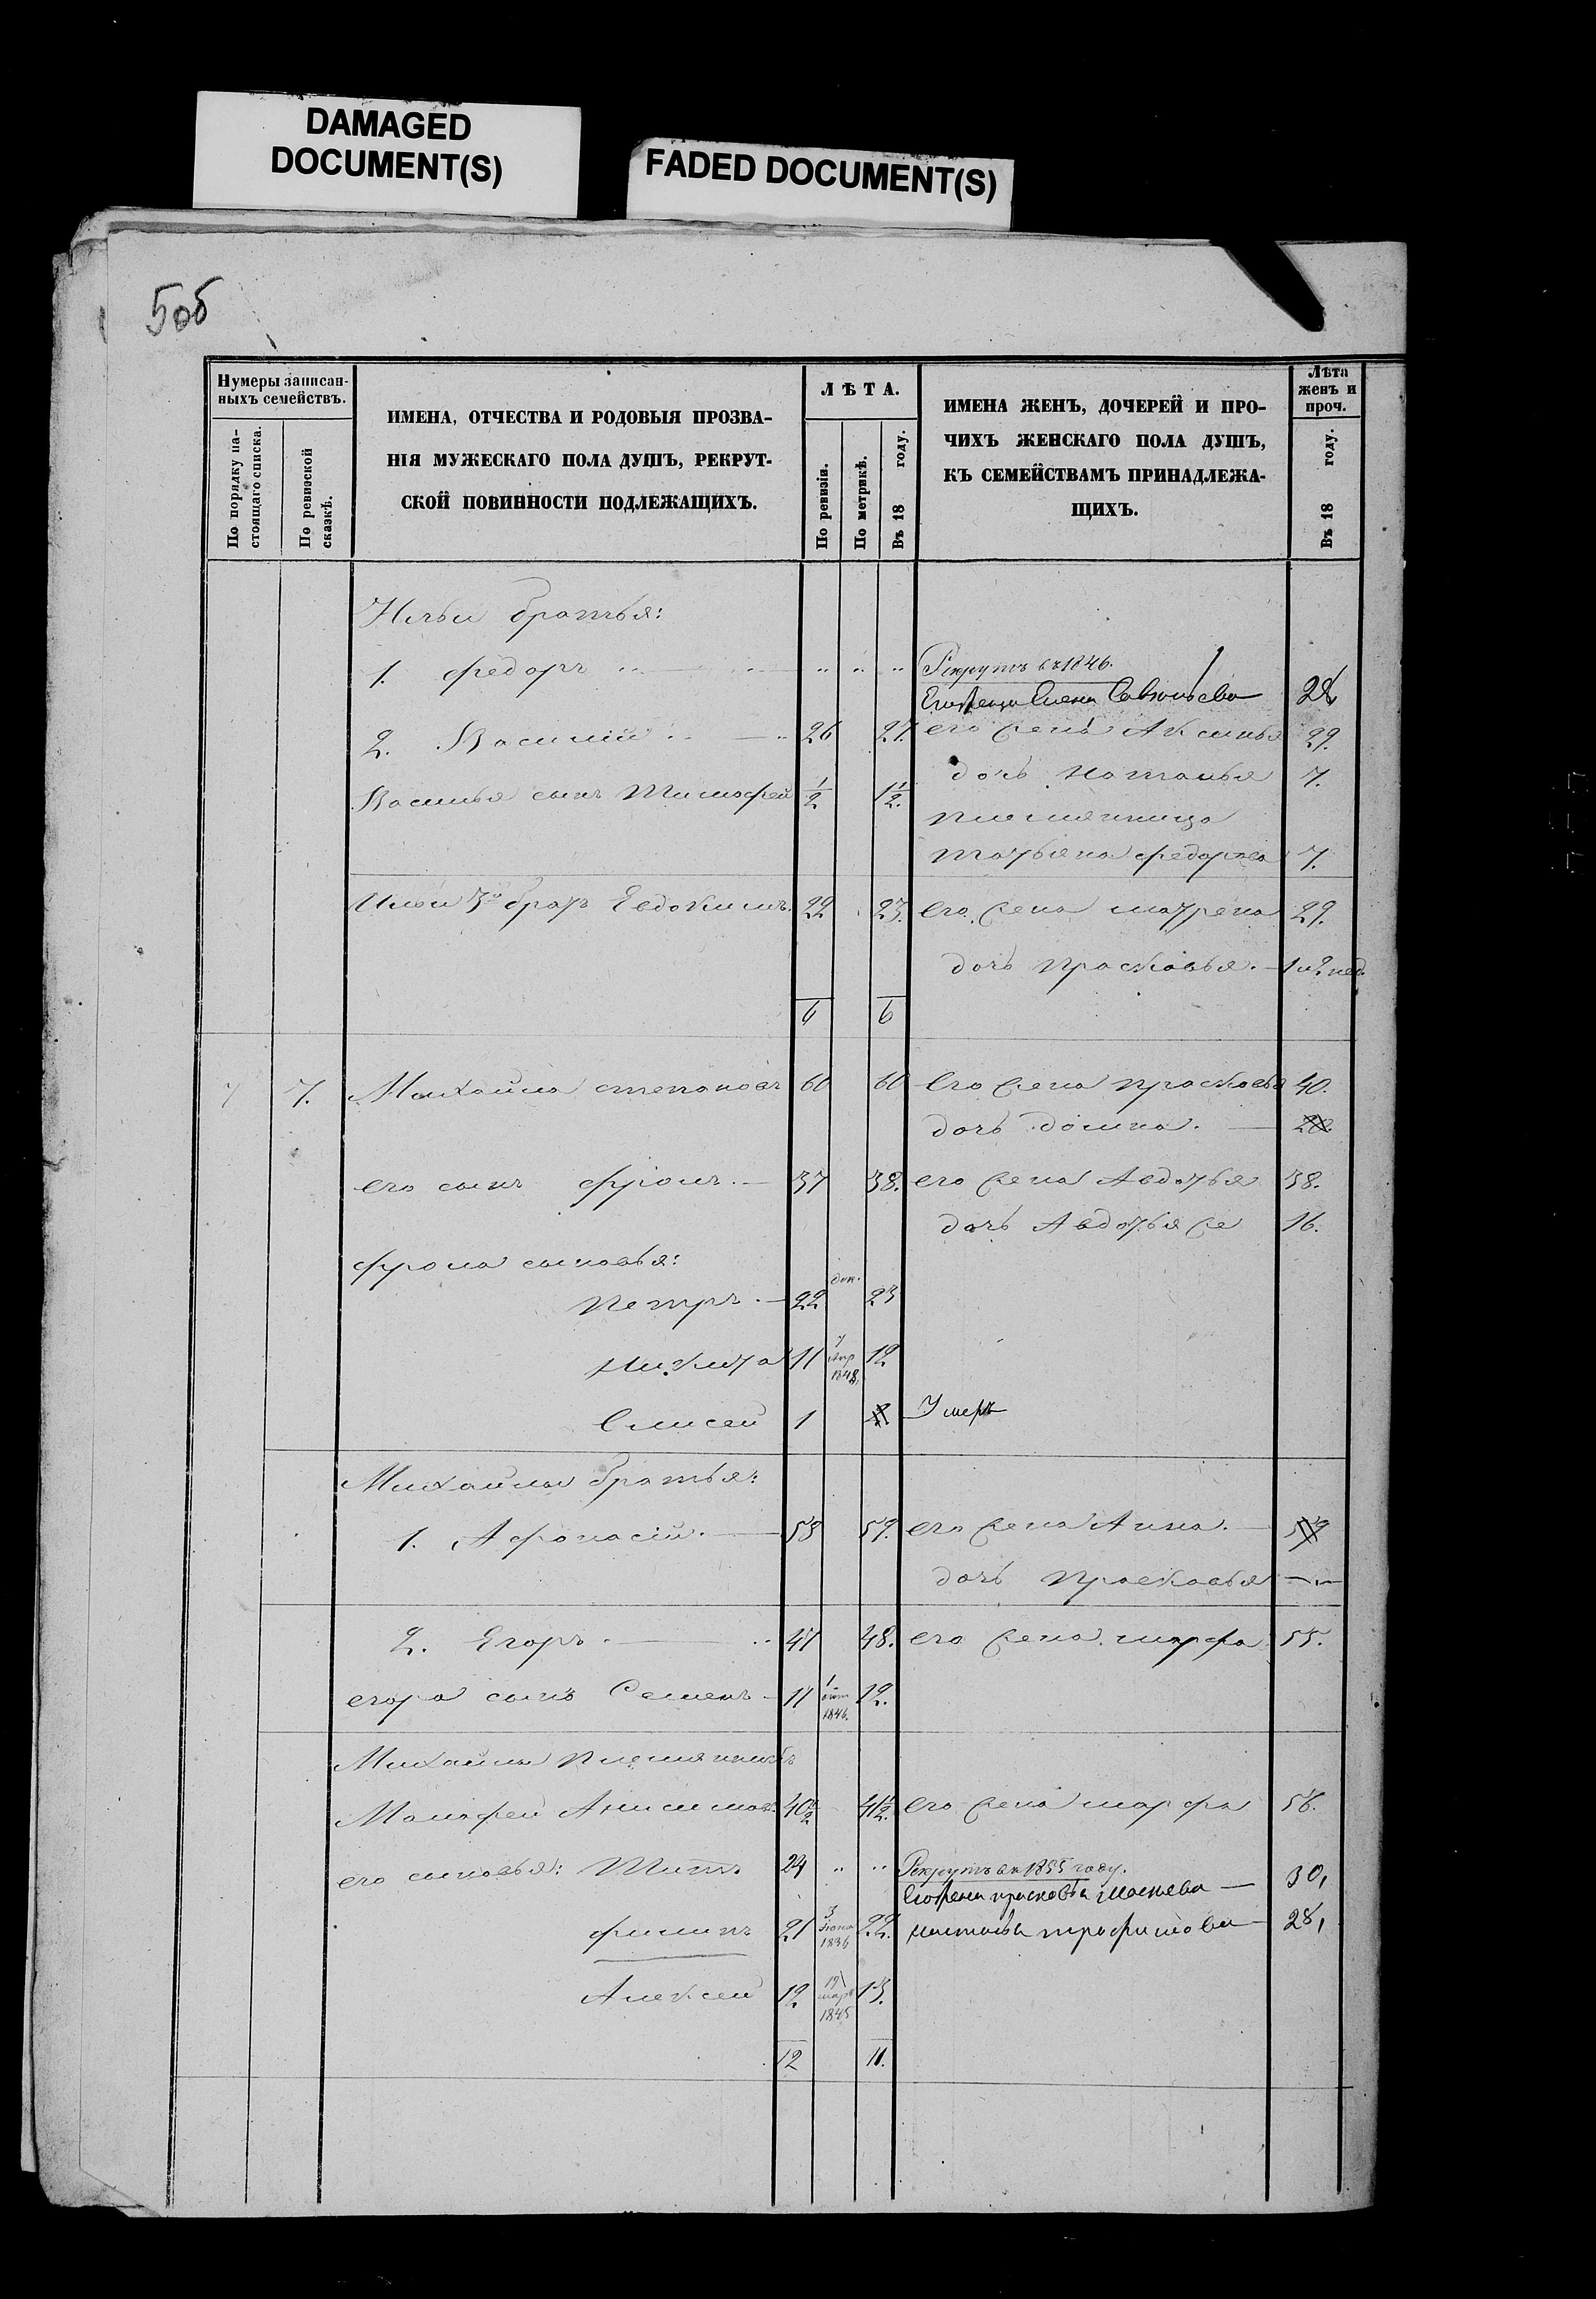 DAMAGED
DOCUMENT(S)
FADED DOCUMENT(S)
5об
Нумеры записан-
ныхъ семействъ.
По порядку на-
стоящаго списка.
По ревизской
сказкѣ.
ИМЕНА, ОТЧЕСТВА И РОДОВЫЯ ПРОЗВА-
НІЯ МУЖЕСКАГО ПОЛА ДУШЪ, РЕКРУТ-
СКОЙ ПОВИННОСТИ ПОДЛЕЖАЩИХЪ.
ЛѢТА.
По ревизіи.
По метрикѣ.
Въ 18 году.
ИМЕНА ЖЕНЪ, ДОЧЕРЕЙ И ПРО-
ЧИХЪ ЖЕНСКАГО ПОЛА ДУШЪ,
КЪ СЕМЕЙСТВАМЪ ПРИНАДЛЕЖА-
ЩИХЪ.
Лѣта
женъ и
проч.
Въ 18 году.
Ильи братья:
1. федоръ " — " " " " Рекрутъ въ 1846.
Его жена Елена Савельева 28
2. Василій " — " 26 27. его жена Аксинья 29.
дочь Наталья 7.
Василья сынъ Тимофей 1/2 1 1/2.
племянница
Татьяна федорова 7.
Ильи 3й братъ Евдокимъ. 22 23. его жена матрена 29.
дочь прасковья. — 1 и 2 нед.
6 6
7 7. Михайла степановъ 60 60 его жена прасковья 40.
дочь домна. — 20.
его сынъ фролъ. — 37 38. его жена Авдотья 38.
дочь Авдотья же 16.
фрола сыновья:
петръ. — 22 23
никита 11 7 апр 1848. 12
Елисей 1 2 Умеръ
Михайлы братья:
1. Афонасій. — 58 59. его жена Анна. — 59
дочь прасковья — " —
2. Егоръ. — " 47 48. его жена. марфа 55.
егора сынъ Семенъ — 11 1 1846. 12.
Михайлы племянникъ
Малофей Анисимовъ 40 1/2 41 1/2. его жена марфа 56.
его сыновья: Титъ 24 " " Рекрутъ въ 1855 году.
Его жена прасковья — 30,
филипъ 21 3 Іюня 1836 22. наталья трофимова — 28,
Алексей 12 19 март 1845 13.
12 11.